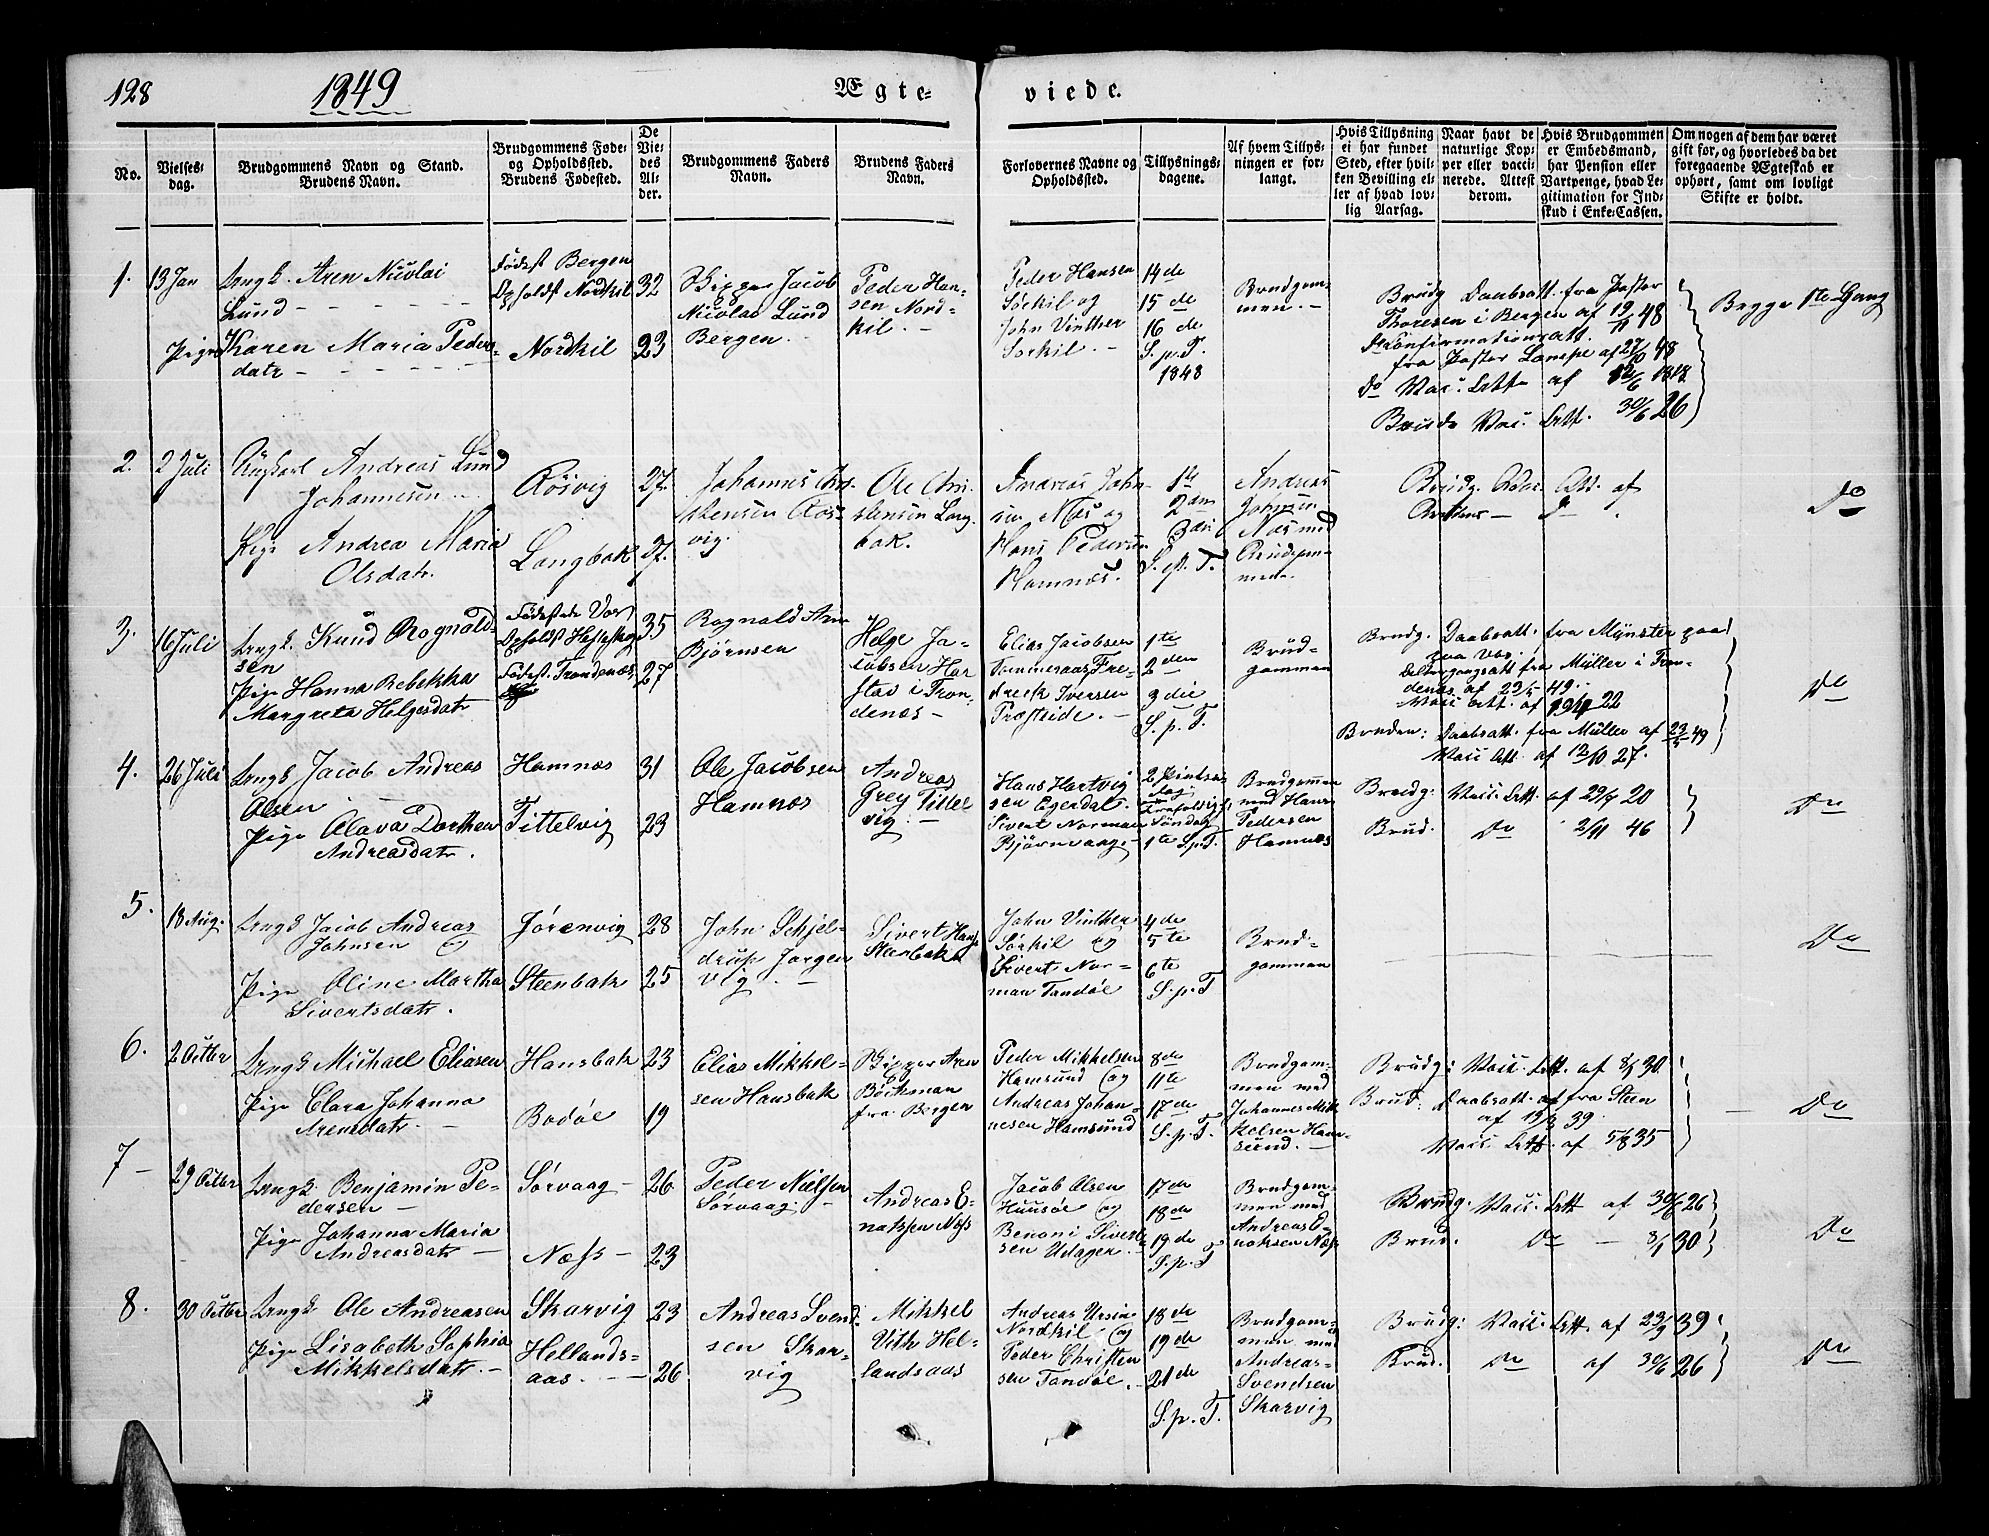 128
1849
Ægte-
viede.
No.
Vielses-
dag.
Brudgommens Navn og Stand.
Brudens Navn.
Brudgommens Føde-
og Opholdssted.
Brudens Fødested.
De
Vie-
des
Al-
der.
Brudgommens Faders
Navn.
Brudens Faders
Navn.
Forlovernes Navne og
Opholdssted.
Tillysnings-
dagene.
Af hvem Tillys-
ningen er for-
langt.
Hvis Tillysning
ei har fundet
Sted, efter hvil-
ken Bevilling el-
ler af hvad lov-
lig Aarsag.
Naar havt de
naturlige Kop-
per eller vacci-
nerede. Attest
derom.
Hvis Brudgommen
er Embedsmand,
har Pension eller
Vartpenge, hvad Le-
gitimation for Ind-
skud i Enke-Cassen.
Om nogen af dem har været
gift før, og hvorledes da det
foregaaende Ægteskab er
ophørt, samt om lovligt
Skifte er holdt.
1.
13 Jan
Ungk. Aren Nicolai
Lund
Pige Karen Maria Peders-
datr
Fødest Bergen
Opholdst Nordkil
Nordkil
32
23
Skipper Jacob
Nicolai Lund
Bergen.
Peder Han-
sen Nord-
kil.
Peder Hansen
Sørkil og
John Vinther
Sørkil.
14de
15de
16de
S. p. T.
1848
Brudgom-
men.
Brudg Daabsatt. fra Pastor
Thoresen i Bergen af 19/11 48
Do Confirmationsatt.
fra Pastor Lampe af 27/10 48
Do Vacc. Att. af 12/6 1818
Bruds Vacc. Att. 30/6 26
Begge 1te Gang
2.
2 Juli
Ungkarl Andreas Lund
Johannesen
Pige Andrea Maria
Olsdatr.
Røsvig
Langbak
27.
27.
Johannes Chri-
stensen Røs-
vig.
Ole Chri-
stensen Lang-
bak.
Andreas John-
sen Næs og
Hans Pedersen
Hamnæs.
1te
2den
3die
S. p. T.
Andreas
Johnsen
Næs med
Brudgom-
men.
Do
3.
16 Juli
Ungk. Knud Rognald-
sen
Pige Hanna Rebekka
Margreta Helgesdatr
Fødestede Vos
Fødest. Trondenæs
35
27
Rognald
Bjørnsen
Helge Ja-
cobsen Har-
stad i Tron-
denæs
Elias Jacobsen
Fre-
drik Iversen
Præsteide.
1te
2den
3die
S. p. T.
Brud-
gommen
Brudg. Daabsatt. fra Mynster paa
paa Vos
fra Müller i Tron-
denæs af 23/5 49.
Vacc Att. af
Bruden: Daabsatt. fra Müller af 23/5 49
Vacc Att. af 12/10 27.
Do
4.
26 Juli
Ungk Jacob Andreas
Olsen
Pige Olava Dorthea
Andreasdatr.
Hamnæs
Tittelvig
31
23
Ole Jacobsen
Hamnæs
Andreas
Grey Tittel-
vig.
Hans Hartvig-
sen Egerdal
Sivert Norman
Bjørnvaag
2 Pintse-
dag
Søndag
1te S.p.T.
Brudgommen
med Hans
Pedersen
Hamnæs
Brudg: Vacc. Att. af 29/7 20
Brud. Do 2/11 46
Do
5.
18 Aug.
Ungk Jacob Andreas
Johnsen
Pige Oline Martha
Sivertsdatr.
Jørenvig
Steenbak
28
25
John Schjel-
drup Jørgen-
vig.
Sivert Hans
Steenbak
John Vinther
Sørkil og
Sivert Nor-
man Tandøe
4de
5te
6te
S. p. T
Brud-
gommen
Do
6.
2 Octbr
Ungk Michael Eliasen
Pige Clara Johanna
Arensdatr.
Hansbak
Bodøe
23
19
Elias Mikkel-
sen Hansbak
Skipper Aren
Böckman
fra Bergen
Peder Mikkelsen
Hamsund og
Andreas Johan-
nesen Hamsund
8de
11te
17de
S. p. T.
Brudgom-
men med
Johannes Mik-
kelsen Ham-
sund.
Brudg: Vacc. Att. af 8/7 30
Brud: Daabsatt. af fra Steen
af 19/8 39.
Vacc. Att. af 5/8 35
Do
7
29 Octbr
Ungk. Benjamin Pe-
dersen
Pige Johanna Maria
Andreasdatr
Sørvaag
Næss
26
23
Peder Nielsen
Sørvaag
Andreas E-
natssen Næss
Jacob Olsen
Huusøe og
Benoni Sivert-
sen Udager.
17de
18de
19de
S. p. T
Brudgom-
men med
Andreas E-
noksen Næss
Brudg. Vacc. Att af 30/6 26
Brud. Do 8/7 30
Do
8.
30 Octbr
Ungk. Ole Andreasen
Pige Lisabeth Sophia
Mikkelsdatr.
Skarvig
Hellands-
aas.
23
26
Andreas Svend-
sen Skar-
vig
Mikkel
Vith Hel-
landsaas
Andreas Ursin
Nordkil og
Peder Christen-
sen Tandøe.
18de
19de
21de
S. p. T.
Brudgom-
men med
Andreas
Svendsen
Skarvig
Brudg: Vacc. Att. af 23/9 39
Brud. Do af 30/6 26
Do